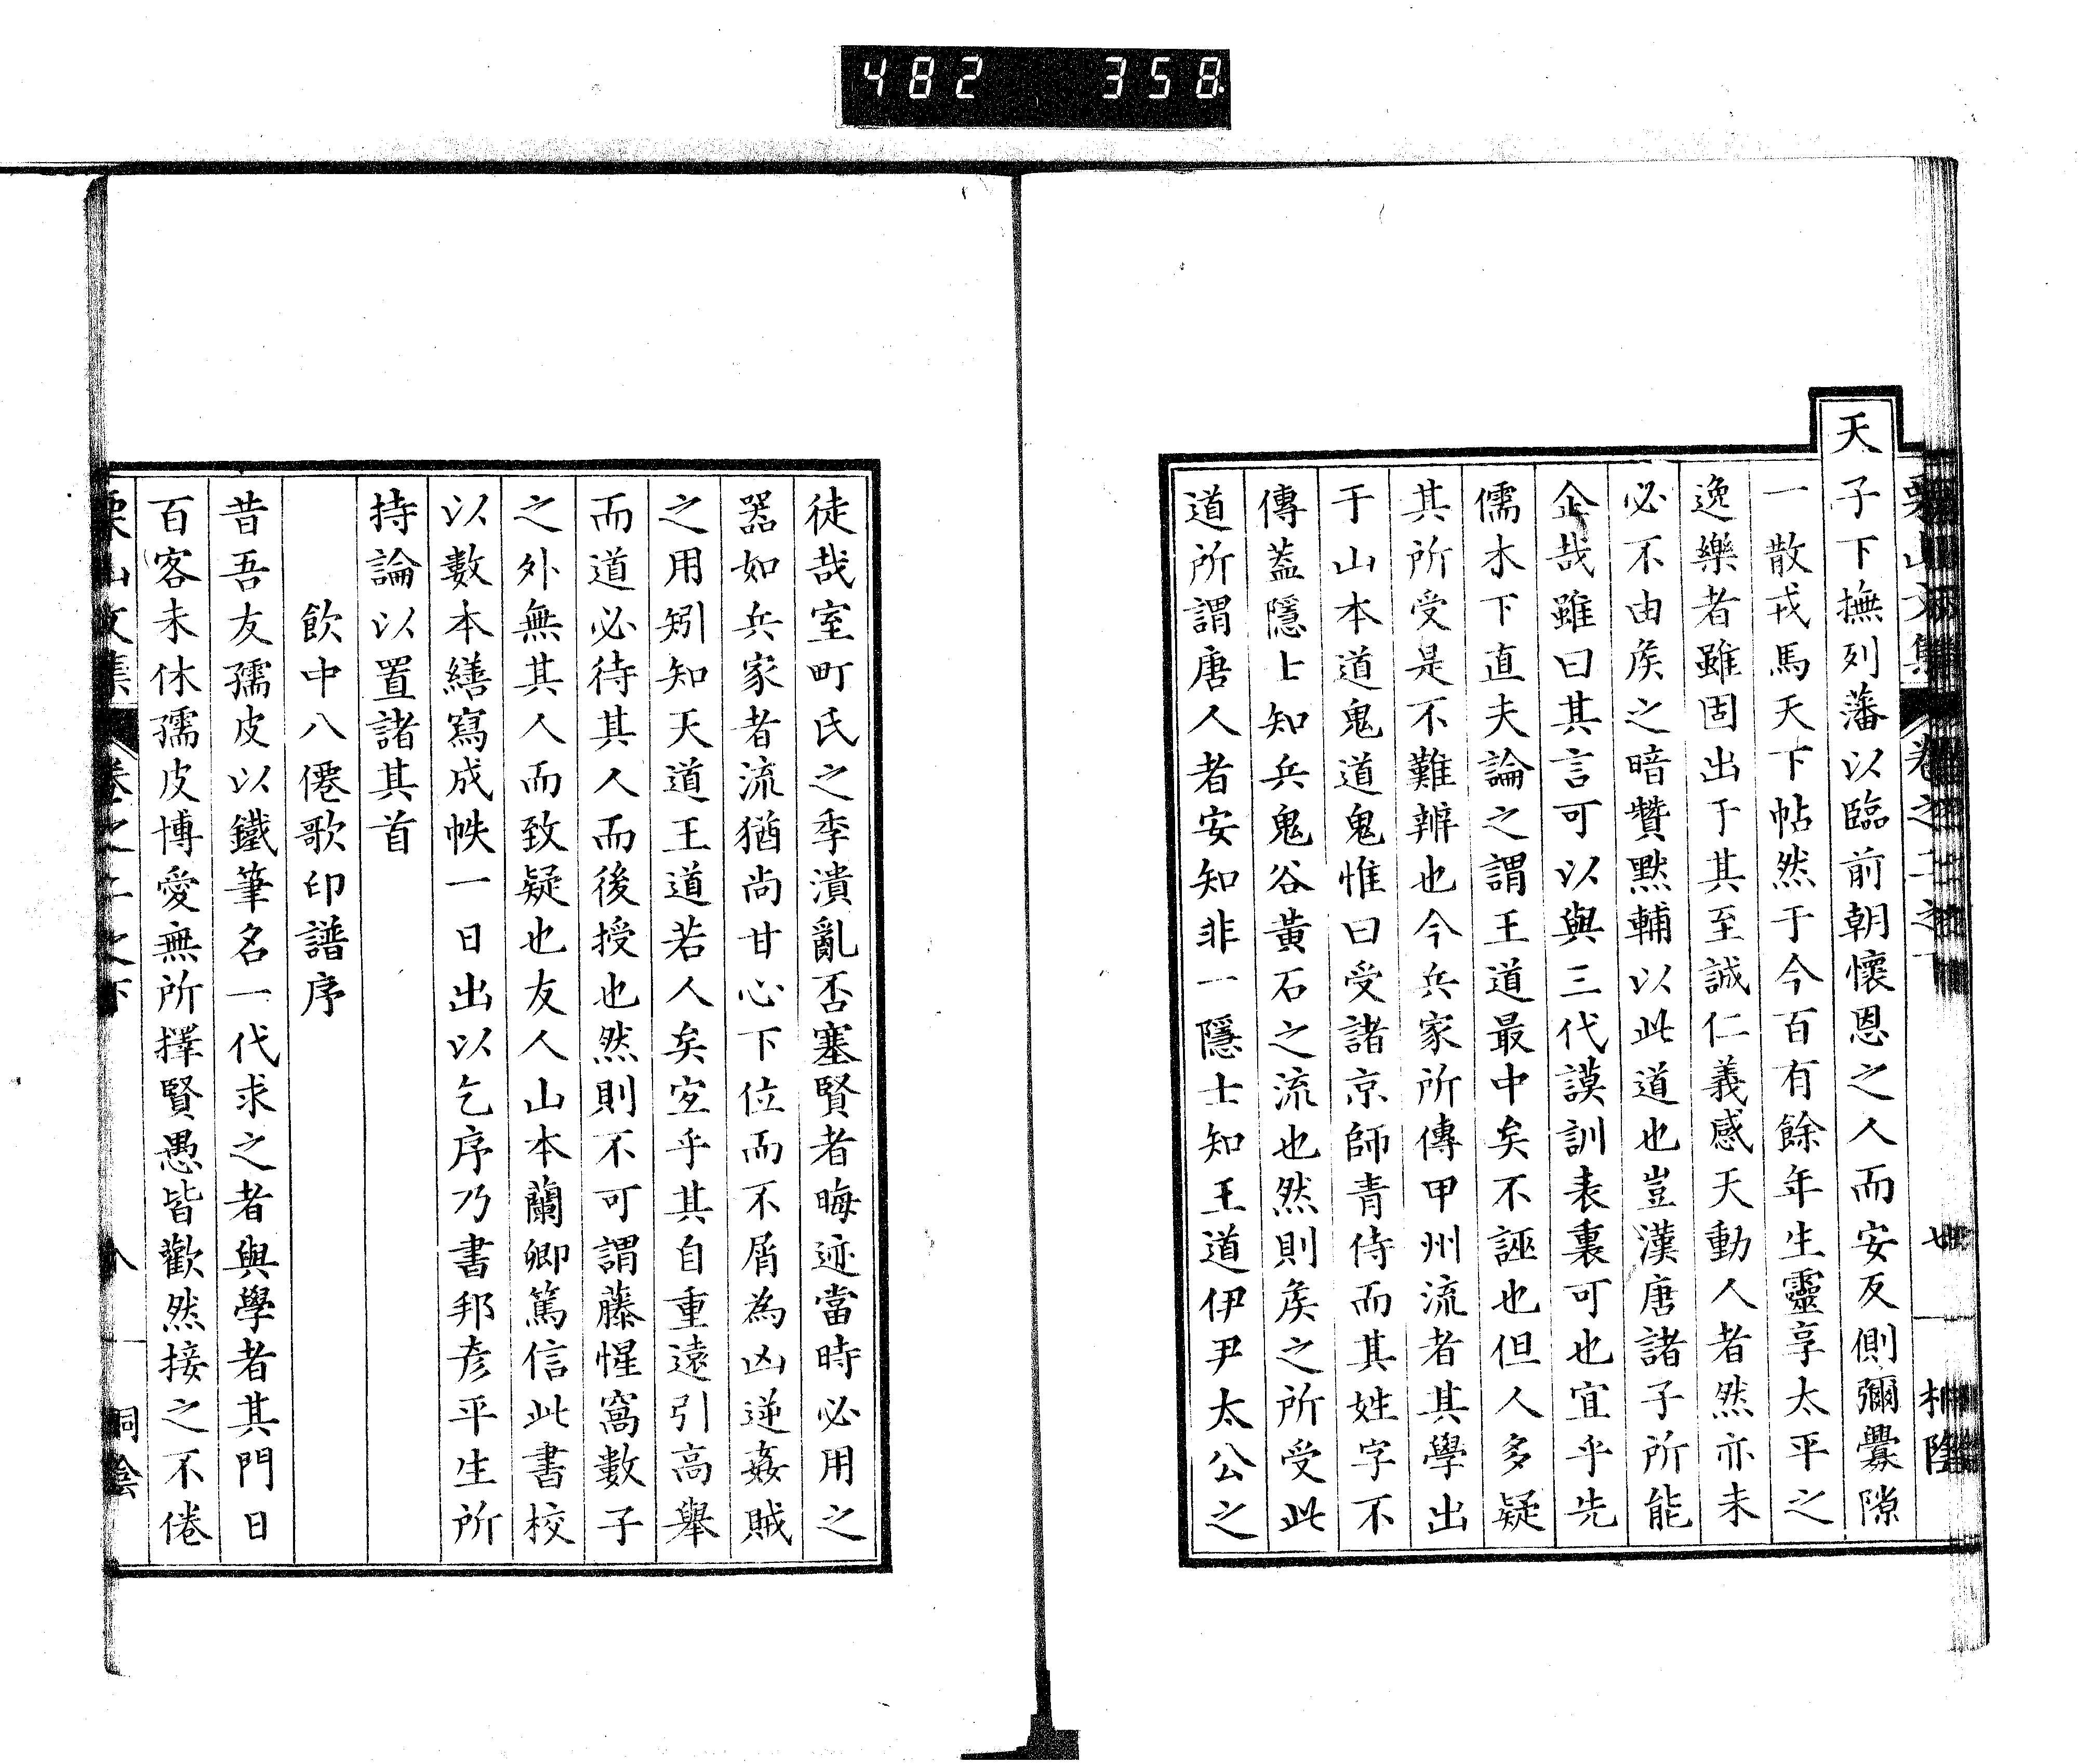 482 358
天子下撫列藩以臨前朝懷恩之人而安反側彌釁隙
一散戎馬天下帖然于今百有餘年生靈享太平之
逸樂者雖固出于其至誠仁義感天動人者然亦未
必不由矦之暗贊默輔以此道也豈漢唐諸子所能
企哉雖曰其言可以與三代謨訓表裏可也宜乎先
儒木下直夫論之謂王道最中矣不誣也但人多疑
其所受是不難辨也今兵家所傳甲州流者其學出
于山本道鬼道鬼惟曰受諸京師青侍而其姓字不
傳蓋隱士知兵鬼谷黃石之流也然則矦之所受此
道所謂唐人者安知非一隱士知王道伊尹太公之
徒哉室町氏之季潰亂否塞賢者晦迹當時必用之
器如兵家者流猶尚甘心下位而不屑為凶逆姦賊
之用矧知天道王道若人矣宐乎其自重遠引高舉
而道必待其人而後授也然則不可謂藤惺窩數子
之外無其人而致疑也友人山本蘭卿篤信此書校
以數本繕寫成帙一日出以乞序乃書邦彥平生所
持論以置諸其首
飲中八僊歌印譜序
昔吾友孺皮以鐵筆名一代求之者與學者其門日
百客未休孺皮博愛無所擇賢愚皆歡然接之不倦